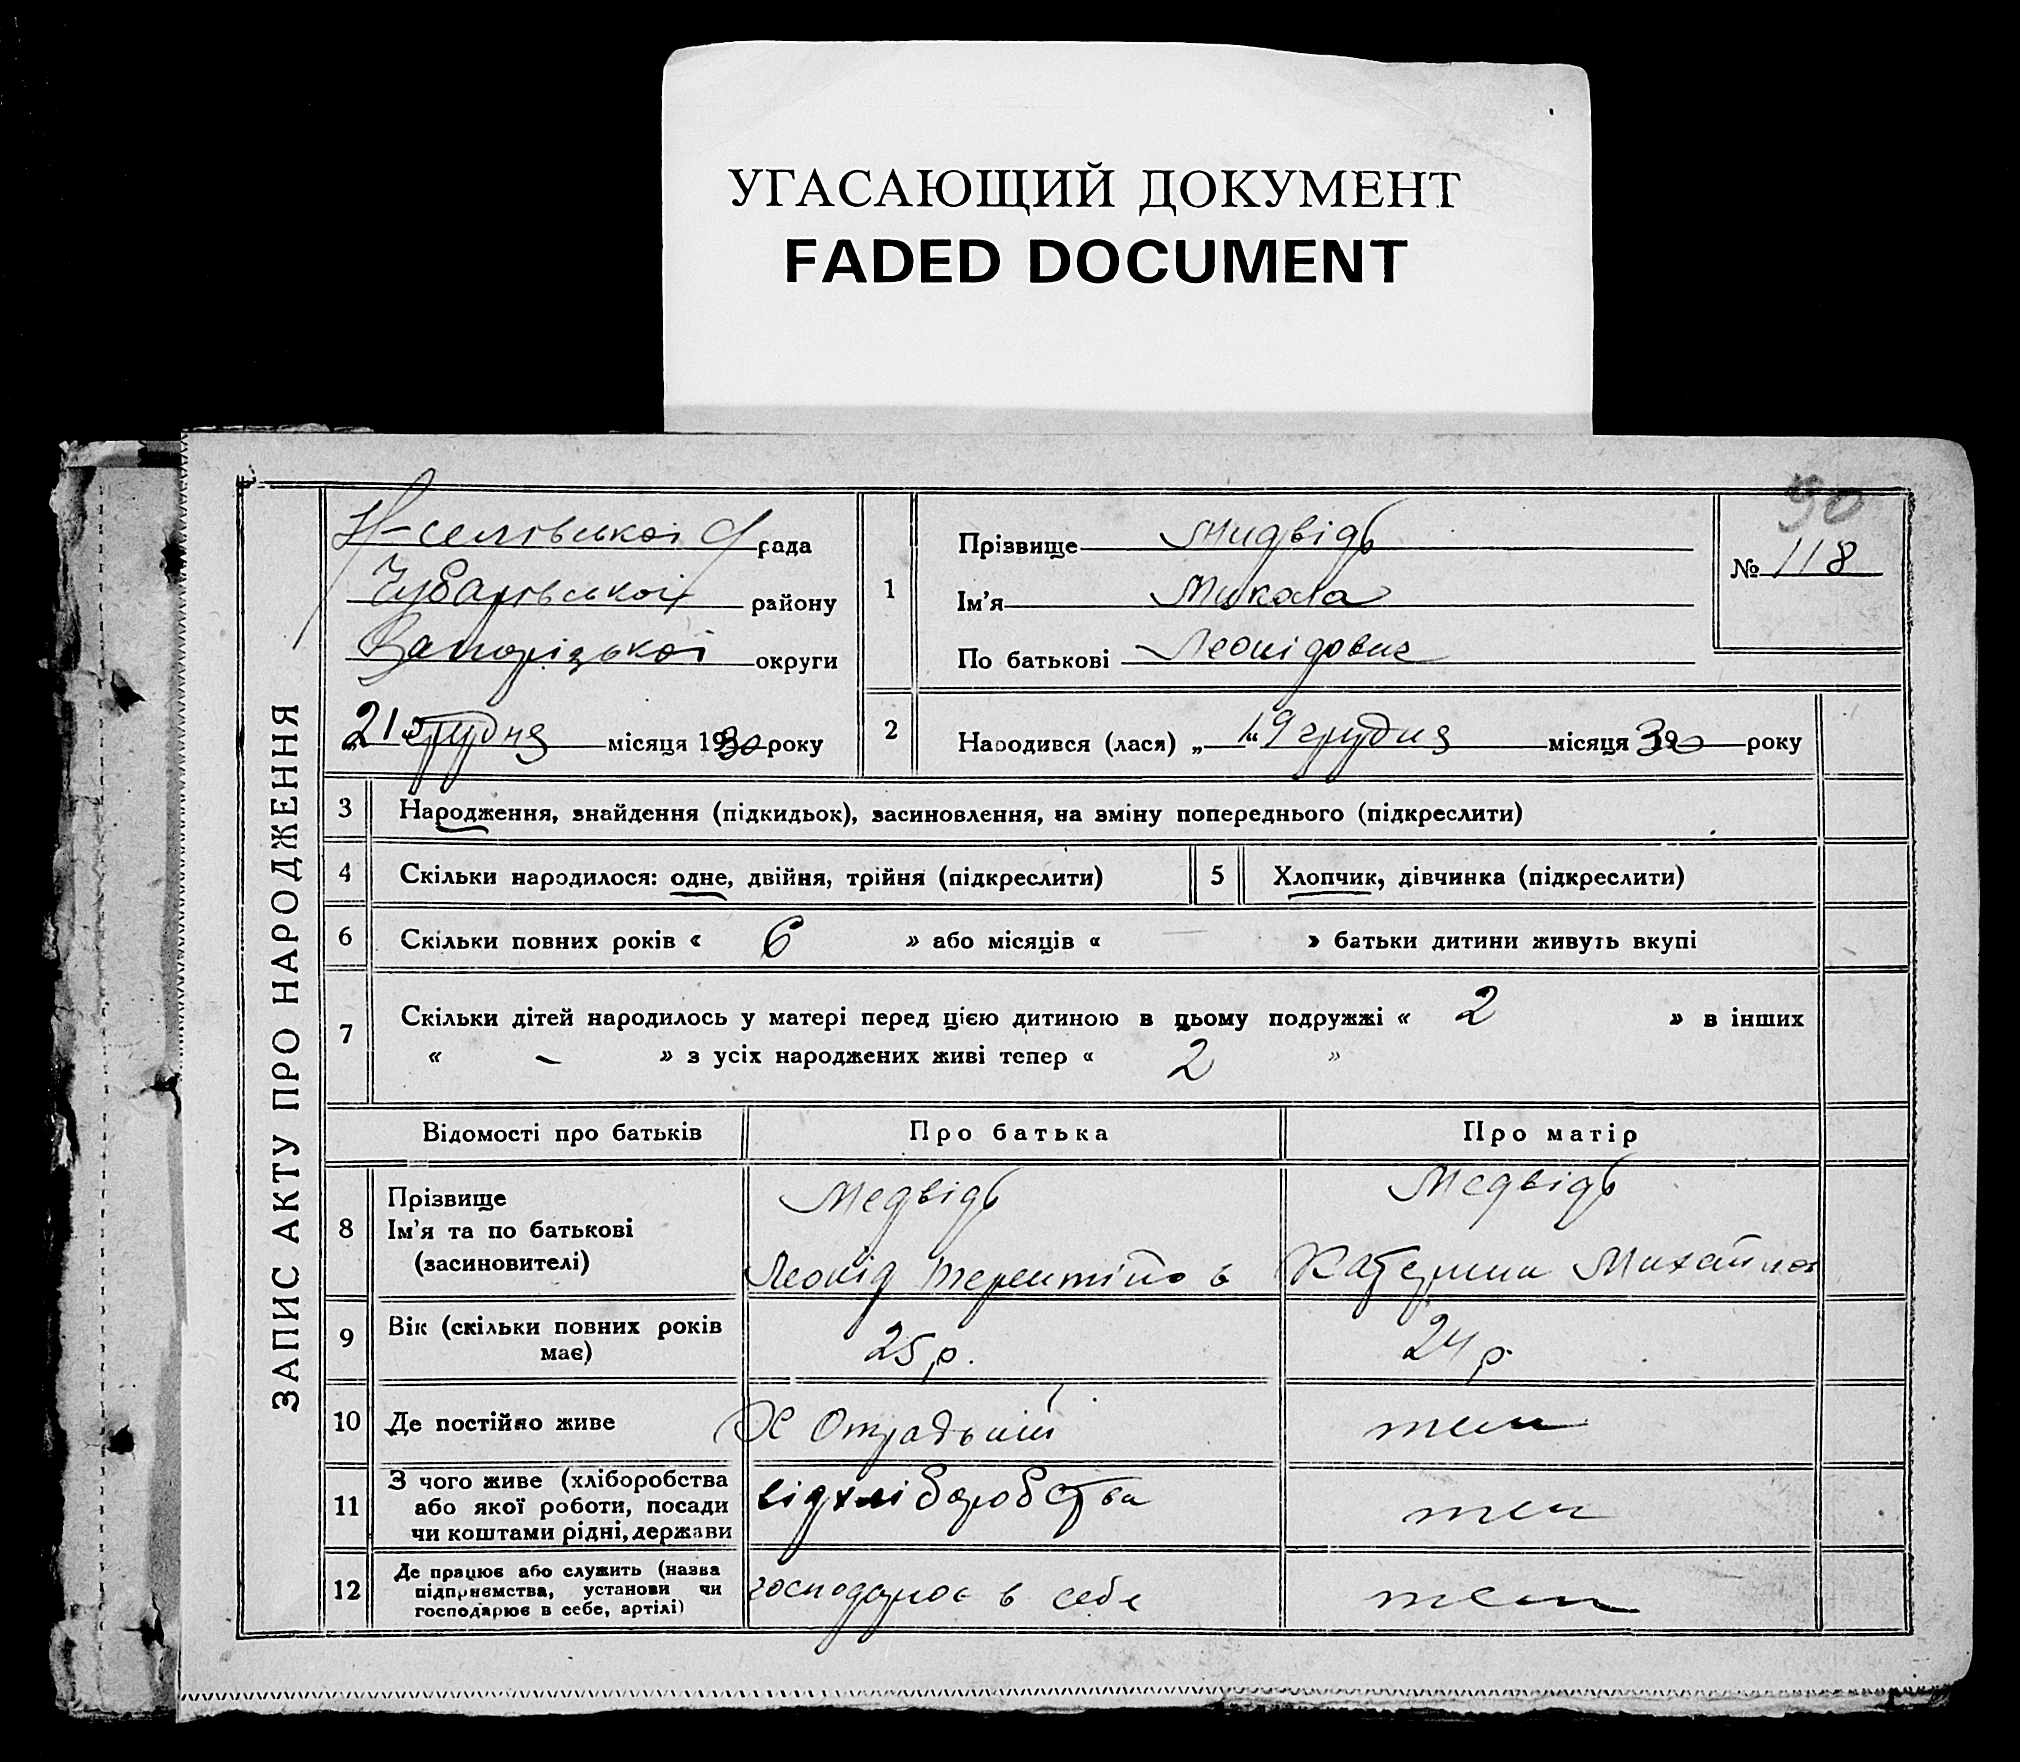 УГАСАЮЩИЙ ДОКУМЕНТ
FADED DOCUMENT
90
ЗАПИС АКТУ ПРО НАРОДЖЕННЯ
Н-селівської рада
Чубарівської району
Запорізької округи
21 грудня місяця 1930 року
1
Прізвище Мидвідь
Ім’я Микола
По батькові Леонідович
№ 118
2
Народився (лася) „ 19 “ грудня місяця 1930 року
3 Народження, знайдення (підкидьок), засиновлення, на зміну попереднього (підкреслити)
4 Скільки народилося: одне, двійня, трійня (підкреслити)
5 Хлопчик, дівчинка (підкреслити)
6 Скільки повних років « 6 » або місяців « » батьки дитини живуть вкупі
7 Скільки дітей народилось у матері перед цією дитиною в цьому подружжі « 2 » в інших
« – » з усіх народжених живі тепер « 2 »
Відомості про батьків Про батька Про матір
8 Прізвище
Ім’я та по батькові
(засиновителі)
Медвідь
Леонід Терентійов
Медвідь
Катерина Михайлов
9 Вік (скільки повних років
має)
25 р.
24 р.
10 Де постійно живе Х Отрадьний теж
11 З чого живе (хліборобства
або якої роботи, посади
чи коштами рідні, держави
від хліборобства
теж
12 Де працює або служить (назва
підприємства, установи чи
господарює в себе, артілі)
господарює в себе
теж